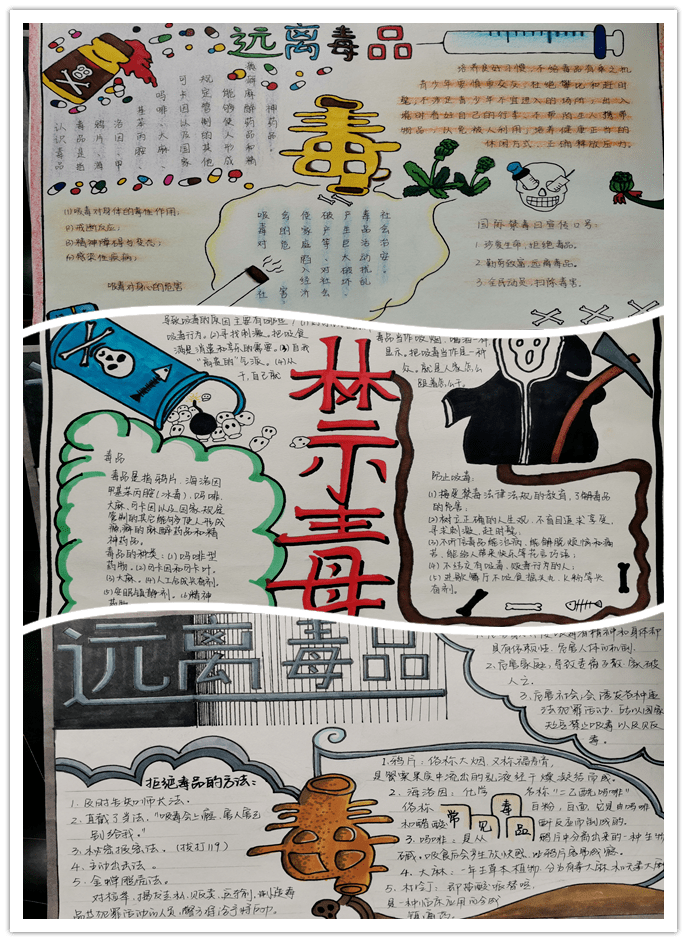 远离毒品
培养良好习惯,不给毒品有乘之机
青少年要慎重交友,杜绝攀比和赶时
髦,不涉足青少年不宜进入的场所,出入
物品,以免被人利用,培养健康正当的
休闲方式,正确释放压力。
认识毒品
毒品是指
鸦片、海
洛因、甲
基苯丙胺
吗啡、大麻、
可卡因以及国家
规定管制的其他
能够使人形成
瘾麻醉药品和精
神药品。
毒
(1)吸毒对身体的毒性作用;
(2)戒断反应;
(3)精神障碍与变态;
(4)感染性疾病;
吸毒对身心的危害
吸毒对社
会的危害
使家庭陷入经济
破产等,对社会
产生巨大破坏,
毒品活动扰乱
社会治安。
国际禁毒日宣传口号:
1.珍爱生命,拒绝毒品。
2.勤劳致富,远离毒品。
3.全民动员,扫除毒害。
吸毒行为。(2)寻找刺激,把吸食
干,自己敢
毒品当作吸烟、
显示。把吸毒当作是一种
禁毒
毒品
毒品是指鸦片、海洛因
甲基苯丙胺(冰毒)、吗啡、
大麻、可卡因以及国家规定
管制的其它能够使人形成
瘾癖的麻醉药品和精
神药品。
毒品的种类:(1)吗啡型
药物。(2)可卡因和可卡叶。
(3)大麻。(4)人工合成兴奋剂。
(5)安眠镇静剂。(6)精神
药物
防止吸毒:
(1)接受禁毒法律法规的教育,了解毒品
的危害;
(2)树立正确的人生观,不盲目追求享受,
寻求刺激,赶时髦;
(3)不听信毒品能治病,能解脱烦恼和痛
苦,能给人带来快乐等花言巧语;
(4)不结交有吸毒、贩毒行为的人;
(5)进歌舞厅不吸食摇头丸、K粉等兴
奋剂。
远离毒品
具有依赖性,危害人体的机制.
2.危害家庭,导致妻离子散,家破
人亡.
3.危害社会,会诱发各种违
法犯罪活动.所以国家
毒。
拒绝毒品的方法:
1.及时告知师长法.
2.直截了当法,"吸毒会上瘾,害人害己
别给我."
3.秘密报案法.(拨打119)
4.主动出击法。
5.金蝉脱壳法.
1.鸦片:俗称大烟,又称福寿膏,
是罂粟果皮中流出的乳液经干燥凝结而成.
2.海洛因:化学名称"二乙酰吗啡"
俗称白粉,白面,它是由吗啡
和醋酸酐反应而制成的.
常见毒品
3.吗啡:是从鸦片中分离出来的一种生物
碱.吸食后会产生欣快感,比鸦片容易成瘾.
4.大麻:一年生草本植物,分为有毒大麻和无毒大麻
5.杜冷丁:即盐酸哌替啶.
是一种临床应用的合成
镇痛药.